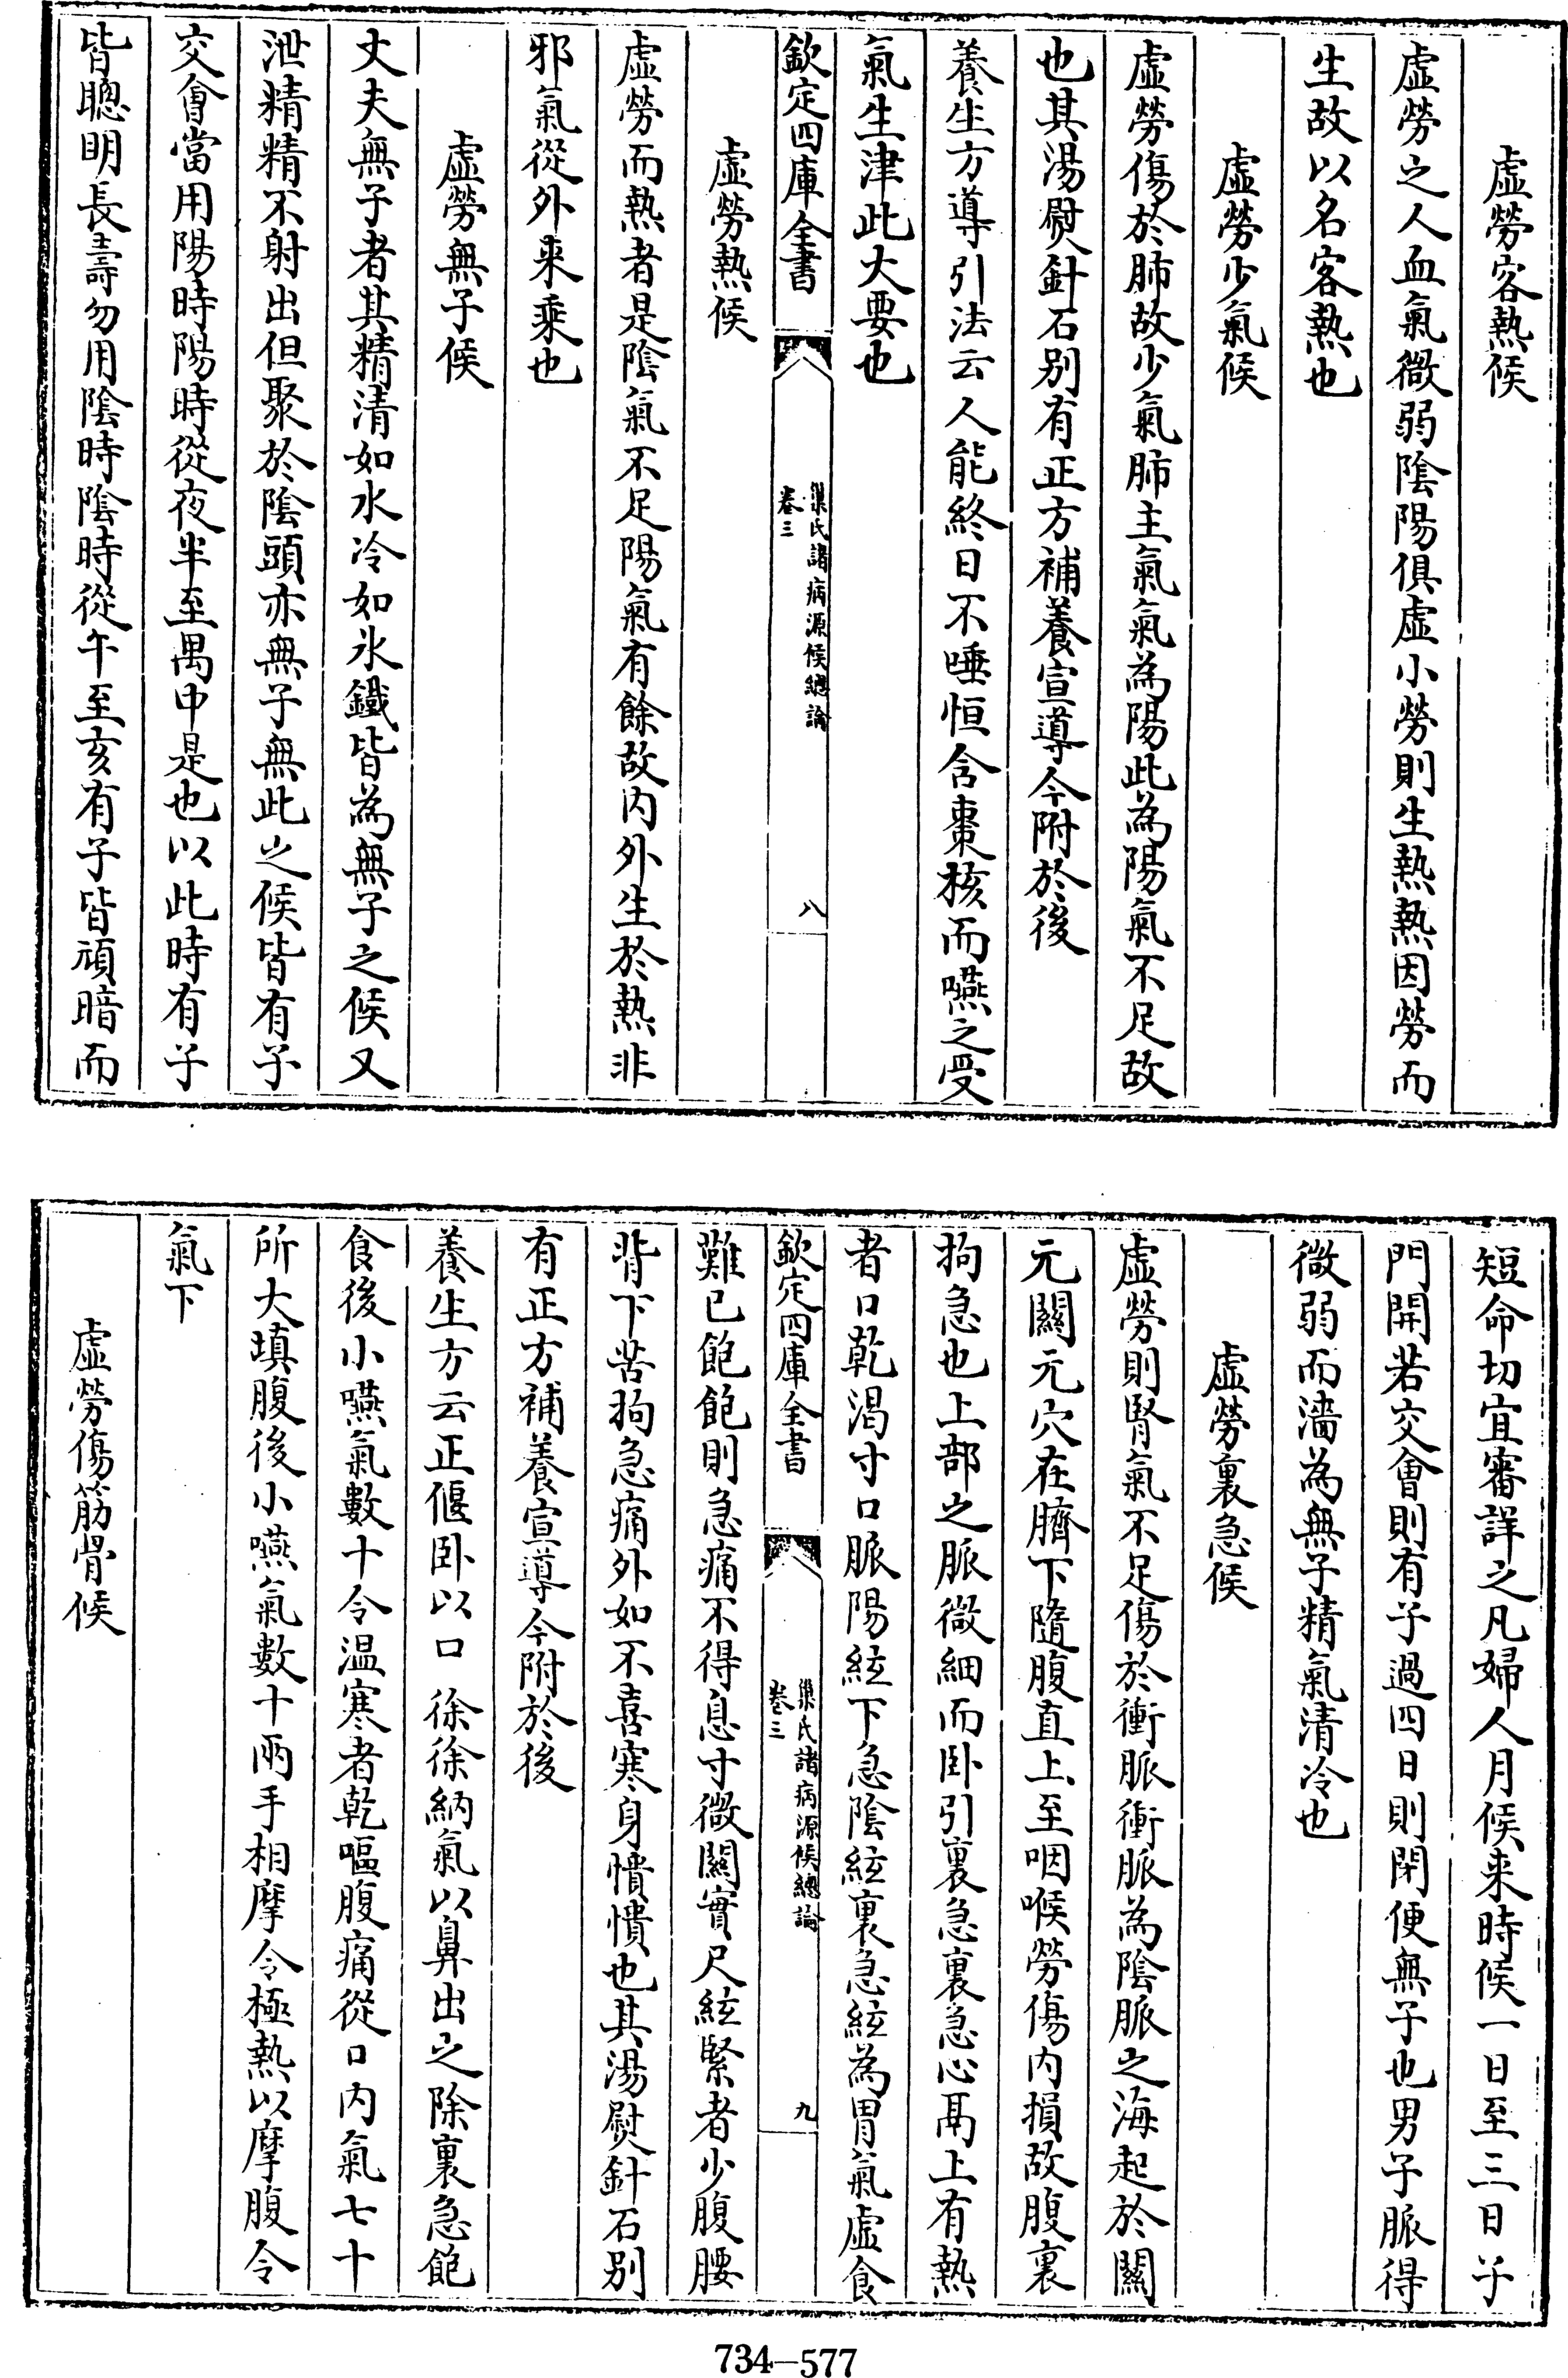 虛勞客熱候
虛勞之人血氣微弱陰陽俱虛小勞則生熱熱因勞而
生故以名客熱也
虛勞少氣候
虛勞傷於肺故少氣肺主氣氣為陽此為陽氣不足故
也其湯熨針石别有正方補養宣導今附於後
養生方導引法云人能終日不唾恒含棗核而嚥之受
氣生津此大要也
欽定四庫全書
巢氏諸病源候總論
卷三
八
虛勞熱候
虛勞而熱者是陰氣不足陽氣有餘故内外生於熱非
邪氣從外来乘也
虛勞無子候
丈夫無子者其精清如水冷如氷鐵皆為無子之候又
泄精精不射出但聚於陰頭亦無子無此之候皆有子
交會當用陽時陽時從夜半至禺中是也以此時有子
皆聰明長壽勿用陰時陰時從午至亥有子皆頑暗而
短命切宜審詳之凡婦人月候来時候一日至三日子
門開若交會則有子過四日則閉便無子也男子脈得
微弱而濇為無子精氣清冷也
虛勞裏急候
虛勞則腎氣不足傷於衝脈衝脈為陰脈之海起於關
元關元穴在臍下隨腹直上至咽喉勞傷内損故腹裏
拘急也上部之脈微細而卧引裏急裏急心鬲上有熱
者口乾渴寸口脈陽絃下急陰絃裏急絃為胃氣虛食
欽定四庫全書
巢氏諸病源候總論
卷三
九
難已飽飽則急痛不得息寸微關實尺絃緊者少腹腰
背下苦拘急痛外如不喜寒身憒憒也其湯熨針石别
有正方補養宣導今附於後
養生方云正偃卧以口徐徐納氣以鼻出之除裏急飽
食後小嚥氣數十令温寒者乾嘔腹痛從口内氣七十
所大填腹後小嚥氣數十兩手相摩令極熱以摩腹令
氣下
虛勞傷筋骨候
734-577